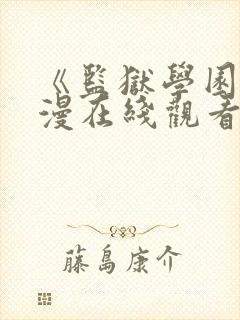 《監獄學園
漫在綫觀看
藤島康介